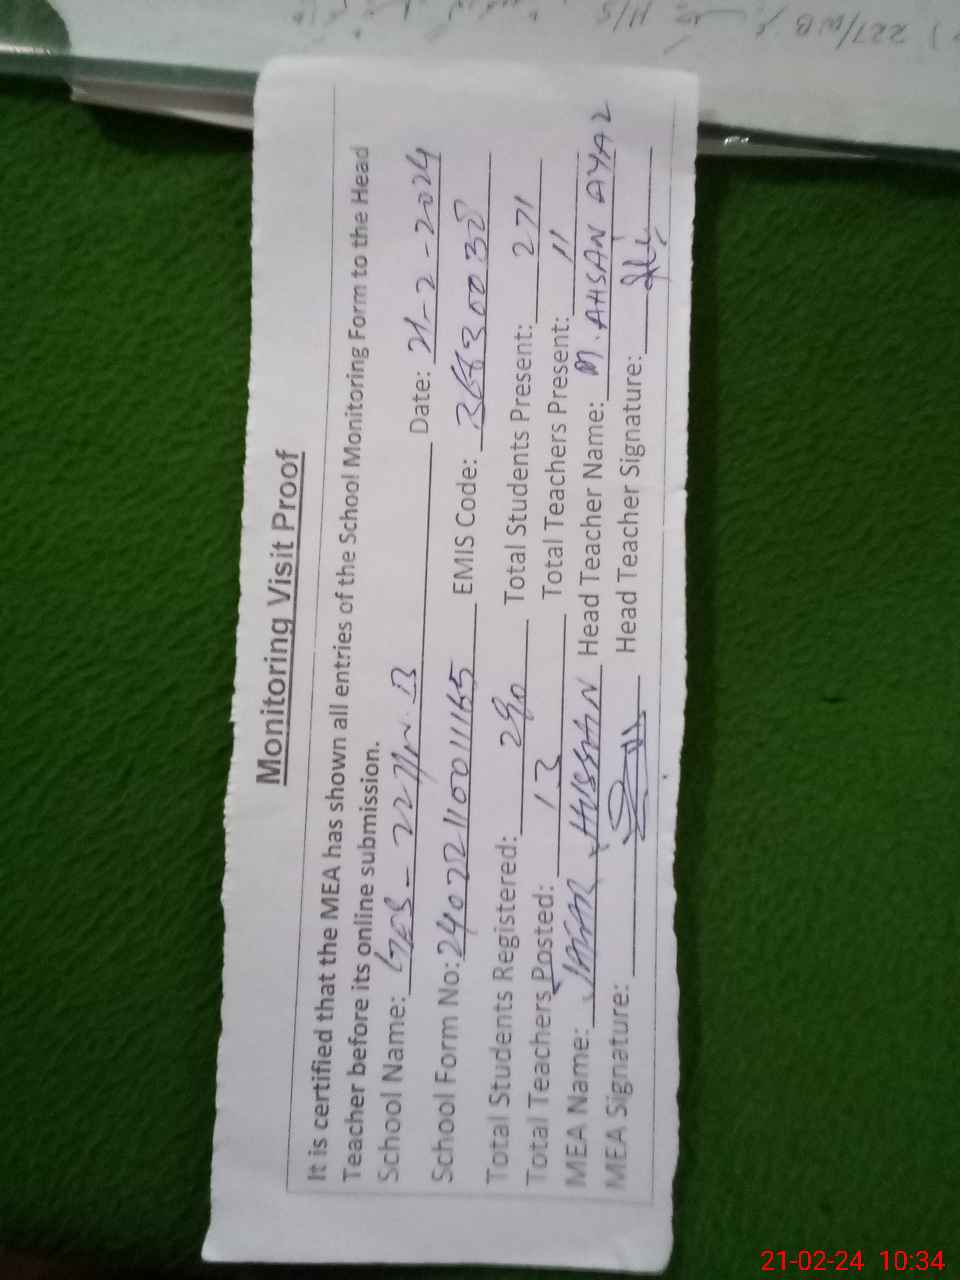 227/WB
H/S
Monitoring Visit Proof
It is certified that the MEA has shown all entries of the School Monitoring Form to the Head
Teacher before its online submission.
School Name: GES - 227/W.B Date: 21-2-2024
School Form No: EMIS Code:
Total Students Registered: 290 Total Students Present: 271
Total Teachers Posted: 13 Total Teachers Present: 11
MEA Name: HUSSAIN Head Teacher Name: M. AHSAN AYAZ
MEA Signature: Head Teacher Signature:
21-02-24 10:34